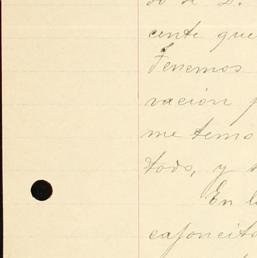 cente que
Tenemos
vación p
me temo
todo, y
En l
cajoncito